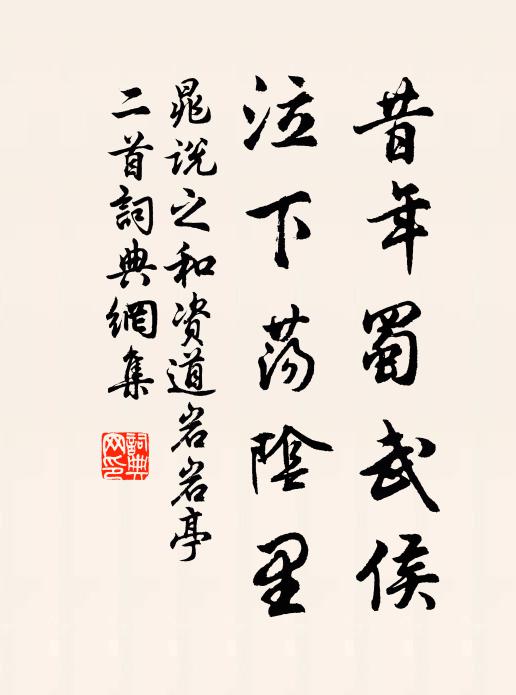 昔年蜀武侯
泣下荡陰里
晁说之和资道岩岩亭
二首詞典網集
詞典网印